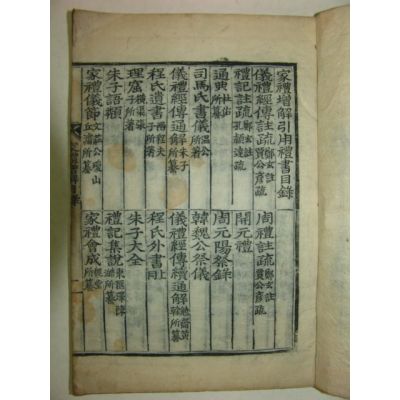 家禮增解引用禮書目錄
儀禮經傳註疏 鄭玄註 賈公彥疏 周禮註疏 鄭玄註 賈公彥疏
禮記註疏 鄭玄註 孔穎達疏 開元禮
通典 杜佑 周元陽祭錄
司馬氏書儀 溫公所著 韓魏公祭儀
儀禮經傳通解 朱子所纂 儀禮經傳續通解 勉齋黃榦所纂
程氏遺書 兩程夫子所著 程氏外書 同上
理窟 橫渠張子所著 朱子大全
朱子語類 禮記集說 東滙澤陳澔所纂
家禮儀節 瓊山丘濬所纂 家禮會成 魏堂所纂